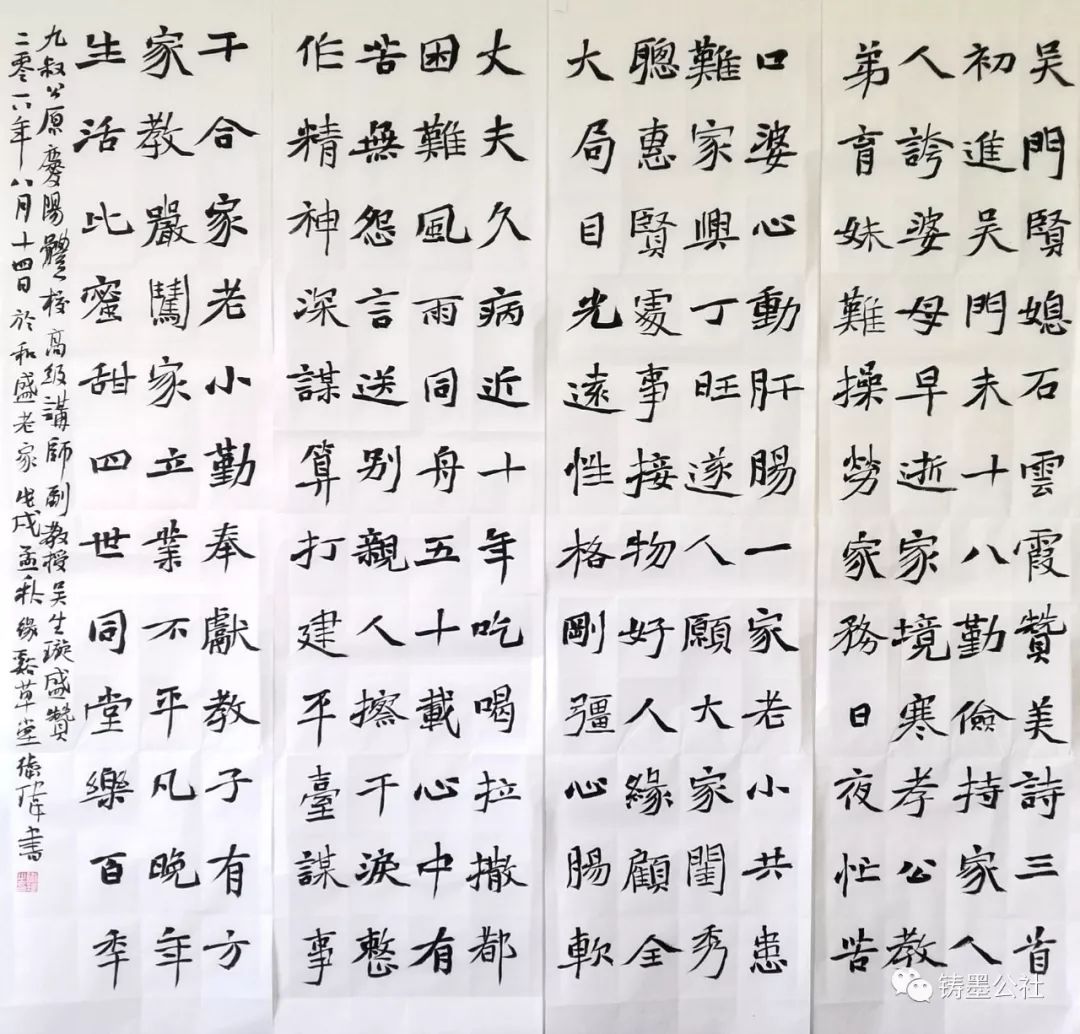 吳門賢媳石雲霞贊美詩三首
初進吳門未十八勤儉持家人
人誇婆母早逝家境寒孝公教
弟育妹難操勞家務日夜忙苦
口婆心動肝腸一家老小共患
難家興丁旺遂人願大家閨秀
聰惠賢處事接物好人緣顧全
大局目光遠性格剛彊心腸軟
丈夫久病近十年吃喝拉撒都
困難風雨同舟五十載心中有
苦無怨言送别親人擦干淚
作精神深謀算打建平臺謀事
干合家老小勤奉獻教子有方
家教嚴闖家立業不平凡晚年
生活比蜜甜四世同堂樂百年
九叔公原慶陽體校高級講師副教授吴生璇盛贊
二零一八年八月十四日於和盛老家戊戌孟秋緣谿草堂書
铸墨公社